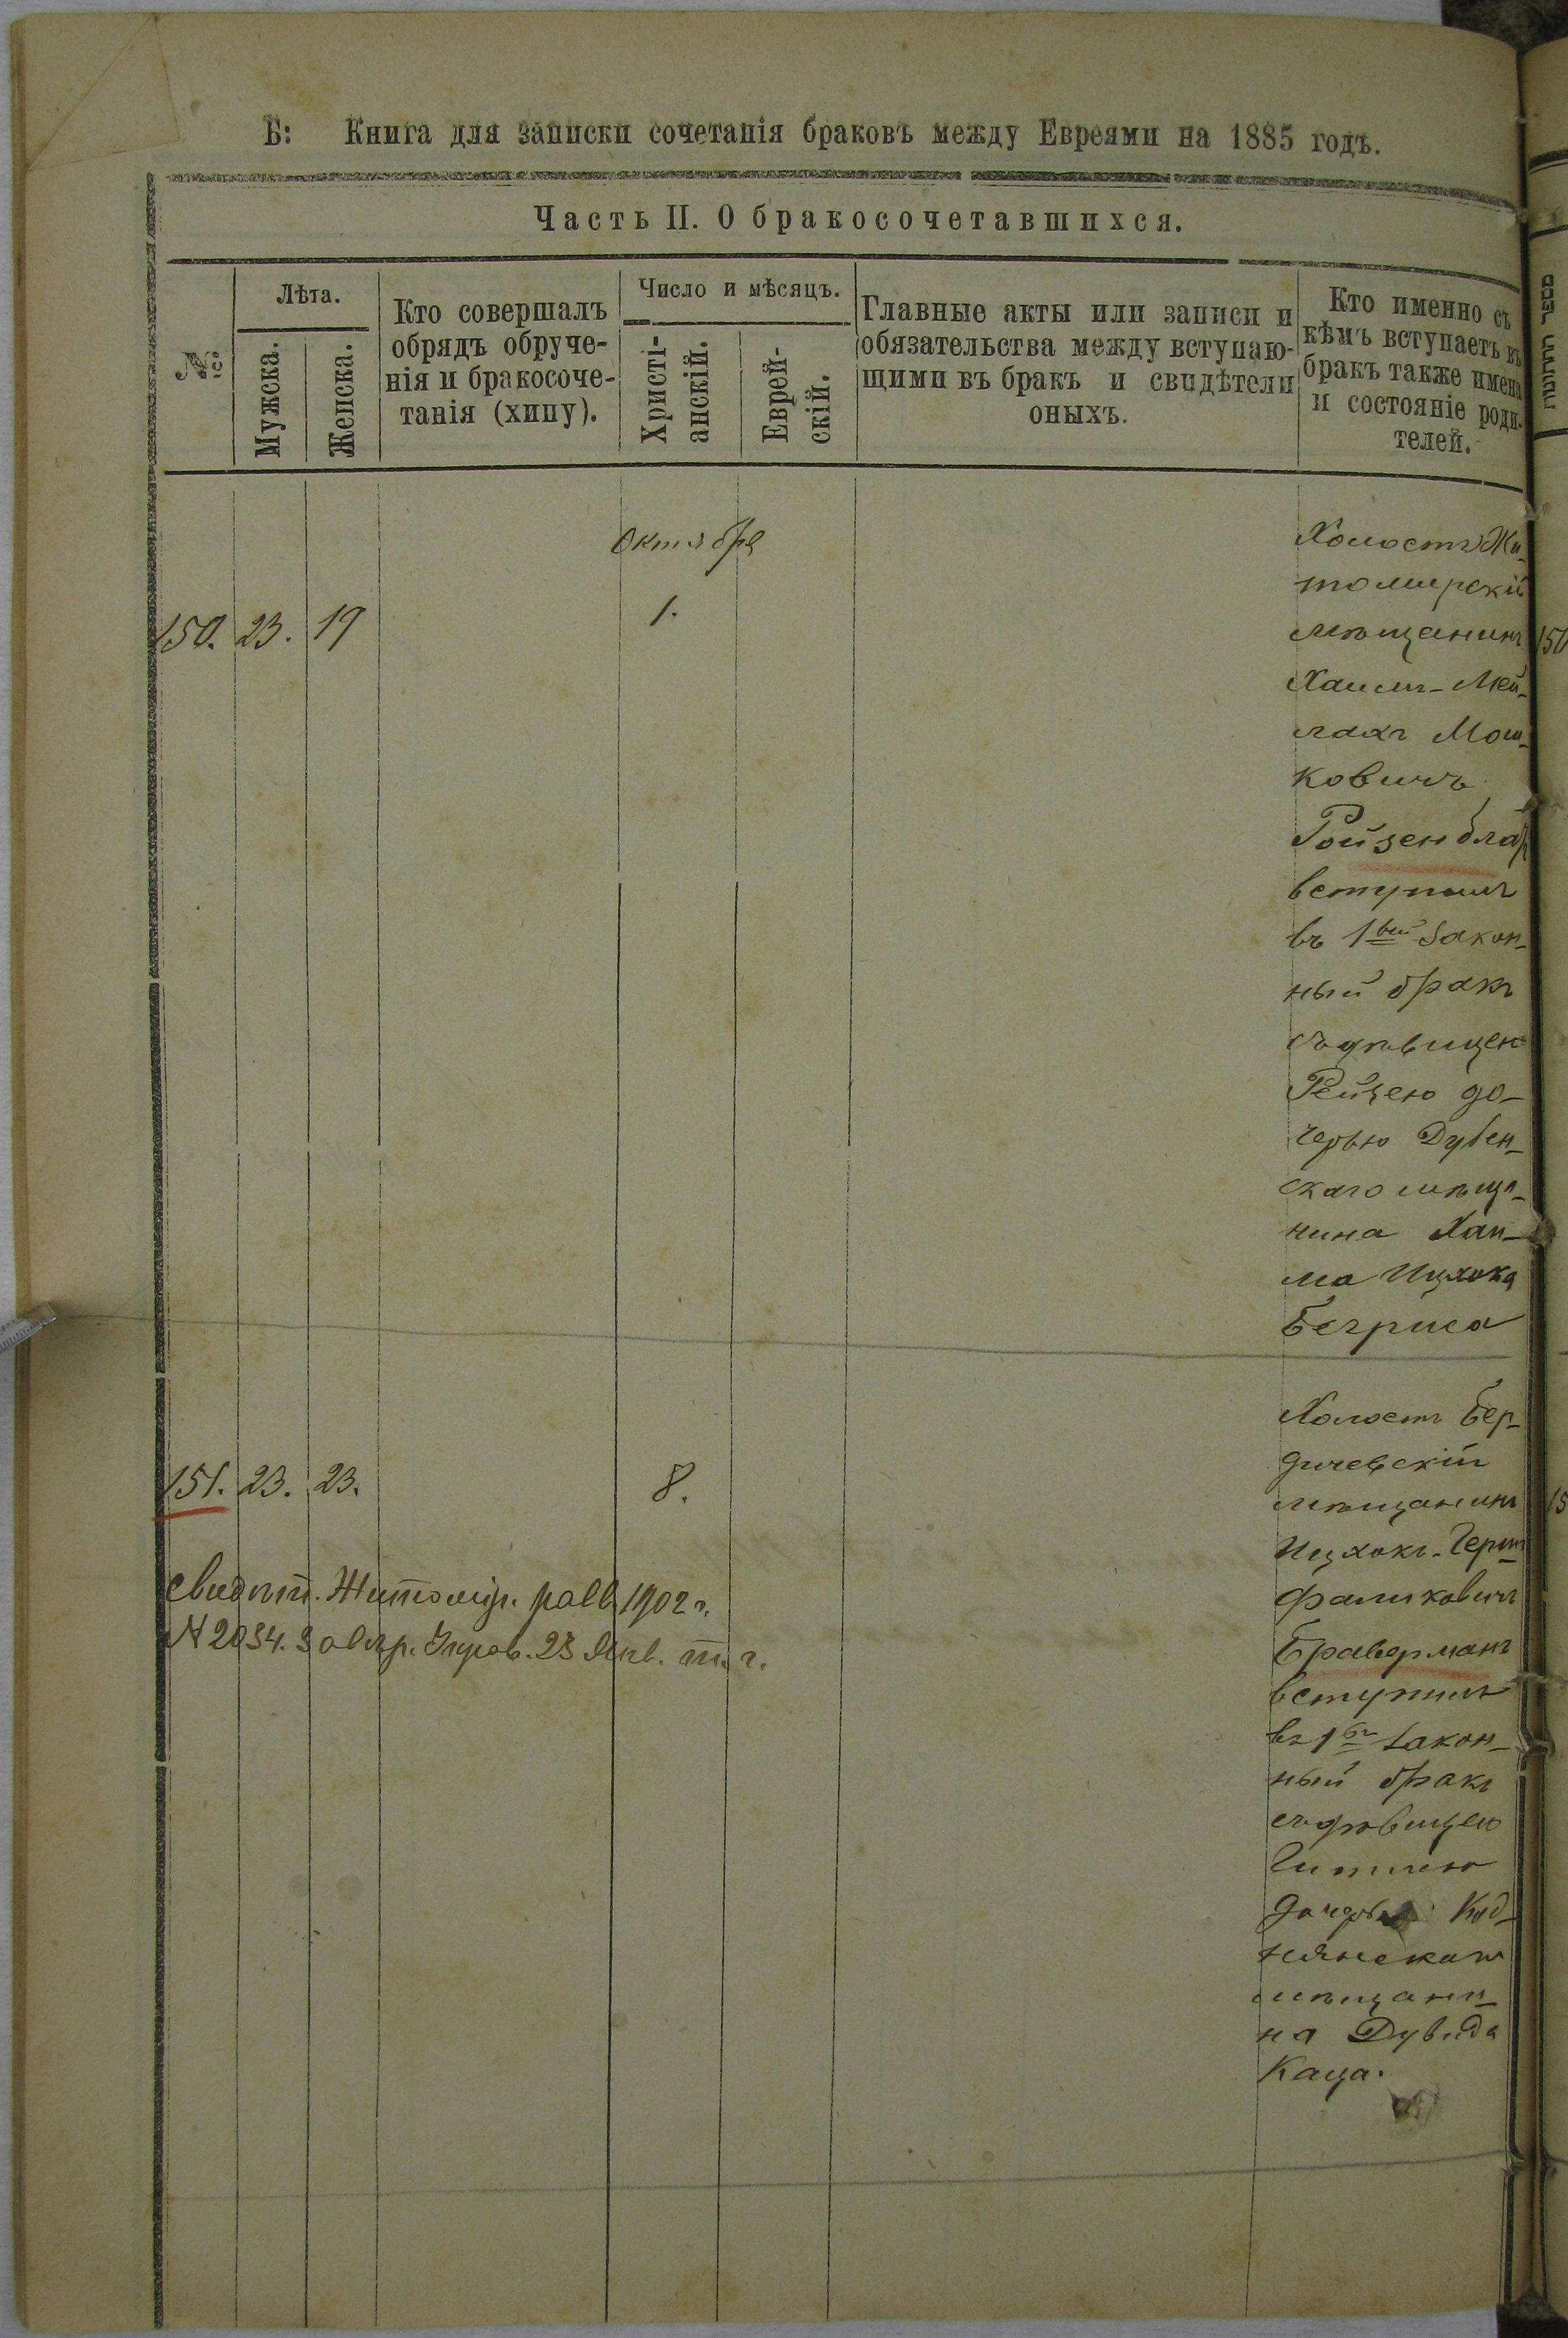 Б: Книга для записки сочетанія браковъ между Евреями на 1885 годъ.
Часть II. О бракосочетавшихся.
№
Лѣта.
Мужска.
Женска.
Кто совершалъ
обрядъ обруче-
нія и бракосоче-
танія (хипу).
Число и мѣсяцъ.
Христі-
анскій.
Еврей-
скій.
Главные акты или записи и
обязательства между вступаю-
щими въ бракъ и свидѣтели
оныхъ.
Кто именно съ
кѣмъ вступаетъ въ
бракъ также имена
и состояніе роди-
телей.
Октября
150. 23. 19 1.
Холостъ Жи-
томирскій
мѣщанинъ
Хаимъ-Мей-
лахъ Мош-
ковичъ
Ройзенблат
вступилъ
въ 1вый закон-
ный бракъ
съ дѣвицею
Рейзею до-
черью Дубен-
скаго мѣща-
нина Хаи-
ма Ицхока
Бегриса
151. 23. 23. 8.
Холостъ Бер-
дичевскій
мѣщанинъ
Ицхокъ-Герш
Фаликовичъ
Браверманъ
вступилъ
въ 1в закон-
ный бракъ
съ дѣвицею
Гитлею
дочерью Код-
нянскаго
мѣщани-
на Дувида
Каца.
Свидѣт. Житомір. равв. 1902 г.
№ 2034. 23 Янв. т. г.
150
15